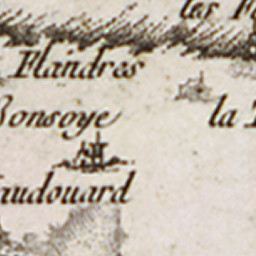 les
Flandres
Bonsoye
la
audouard